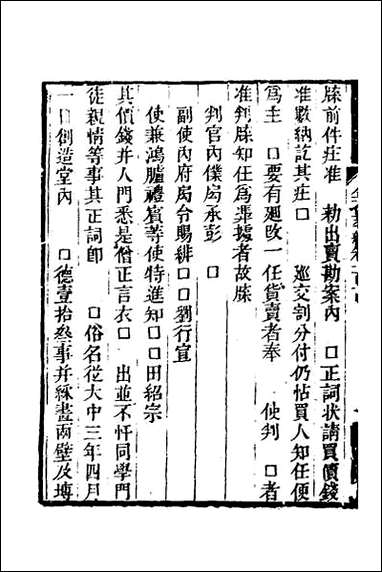 牒前件莊准　勑出賣勘案內　□正詞狀請買價錢
准數納訖其莊□　巡交割分付仍帖買人知任便
為主　□要有廻改一任貨賣者奉　使判　□者
准判牒知任為憑據者故牒
判官內僕局丞彭　□
副使內府局令賜緋□□劉行宣
使兼鴻臚禮賓等使特進知□□田紹宗
其價錢并人門悉是僧正言衣□　出並不忓同學門
徒親情等事其正詞卽　□俗名從大中三年四月
一日創造堂內　□德壹拾叁事并綵畫兩壁及塼